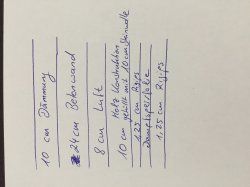 10 cm Dämmung
24 cm Betonwand
8 cm Luft
Holz Konstruktion
10 cm gefüllt mit 10 cm Steinwolle
1.25 cm Rigips
Dampfsperrfolie
1.25 cm Rigips